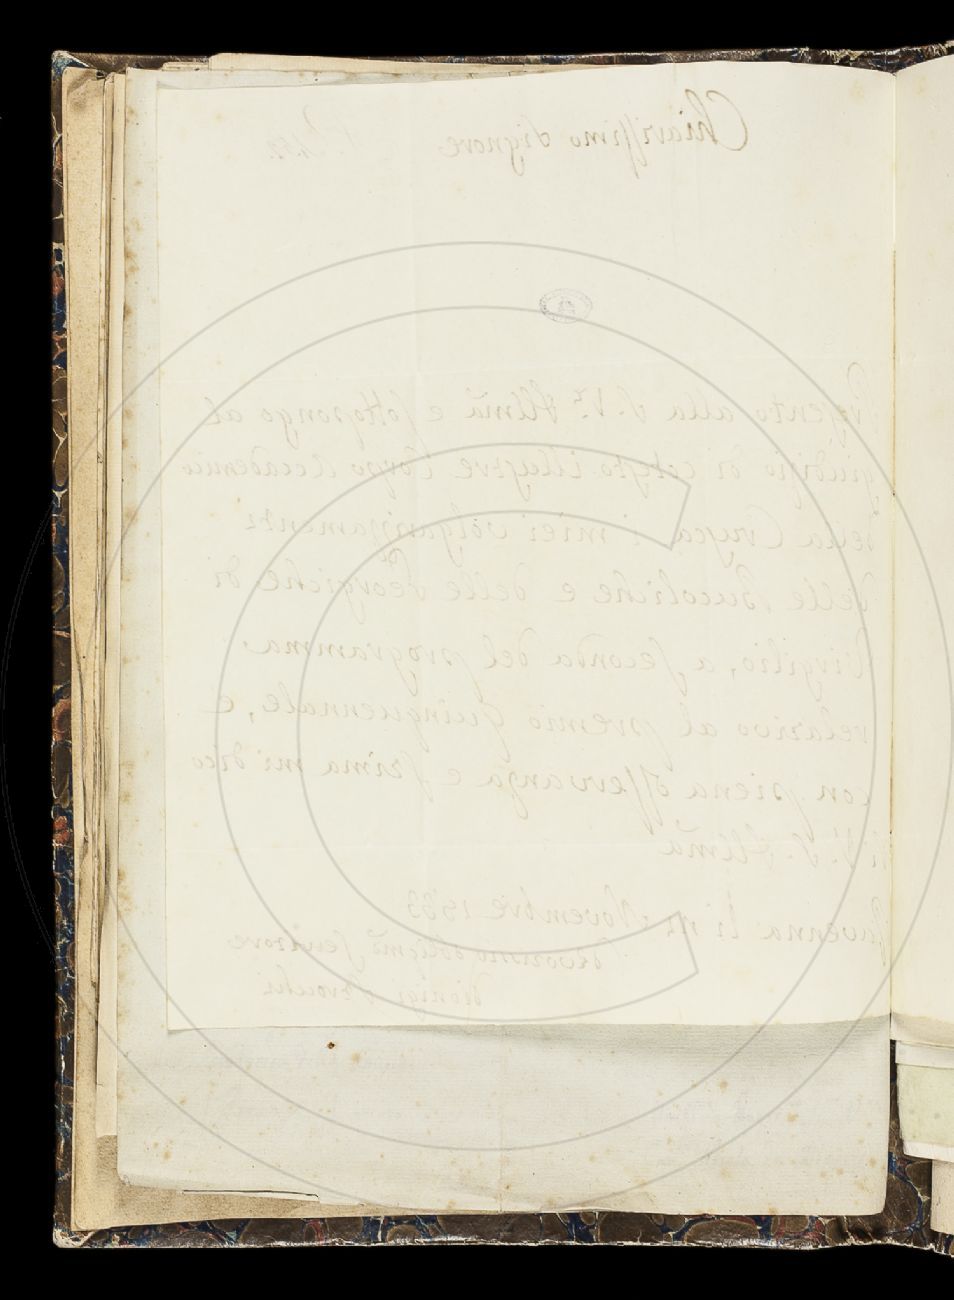 Chiarissimo Signore
Presento alla S. V.ª Illmã e sottopongo al
giudizio di cotesto illustre Corpo Accademico
della Crusca, i miei volgarizzamenti
delle Bucoliche e delle Georgiche di
Virgilio, a seconda del programma
relativo al premio Quinquennale, e
con piena osservanza e stima mi dico
V. S. Illmã
Ravenna li Novembre 1833
Devotissmo obbligmõ servitore
Dionigi Strocchi